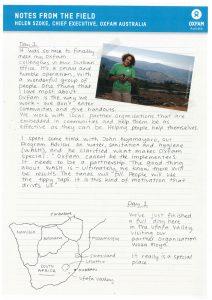 NOTES FROM THE FIELD
HELEN SZOKE, CHIEF EXECUTIVE, OXFAM AUSTRALIA
OXFAM
Australia
Day 1
It was so nice to finally
meet my Oxfam
colleagues in our Durban
office. It's a small and
humble operation, with
a wonderful group of
people. One thing that
I love most about
Oxfam is the way we
work - we don't enter
communities and give handouts.
We work with local partner organisations that are
embedded in communities and help them be as
effective as they can be. Helping people help themselves.
I spent some time with John
our
Program Advisor on water, sanitation and hygiene
(WASH), and he clarified what makes Oxfam
special: "Oxfam cannot be the implementers.
It needs to be a partnership. The good thing
about WASH is ultimately we know there will
be results. The tanks will fill. People will use
the tippy taps. It is this kind of motivation that
drives us."
ZIMBABWE
NAMIBIA
BOTSWANA
SOUTH
AFRICA
Durban
Utafa Valley
Day 2
We've just finished
a full day here in
the Utafa Valley,
visiting our
partner
Organisation
Woza Moya.
It really is a special
place.